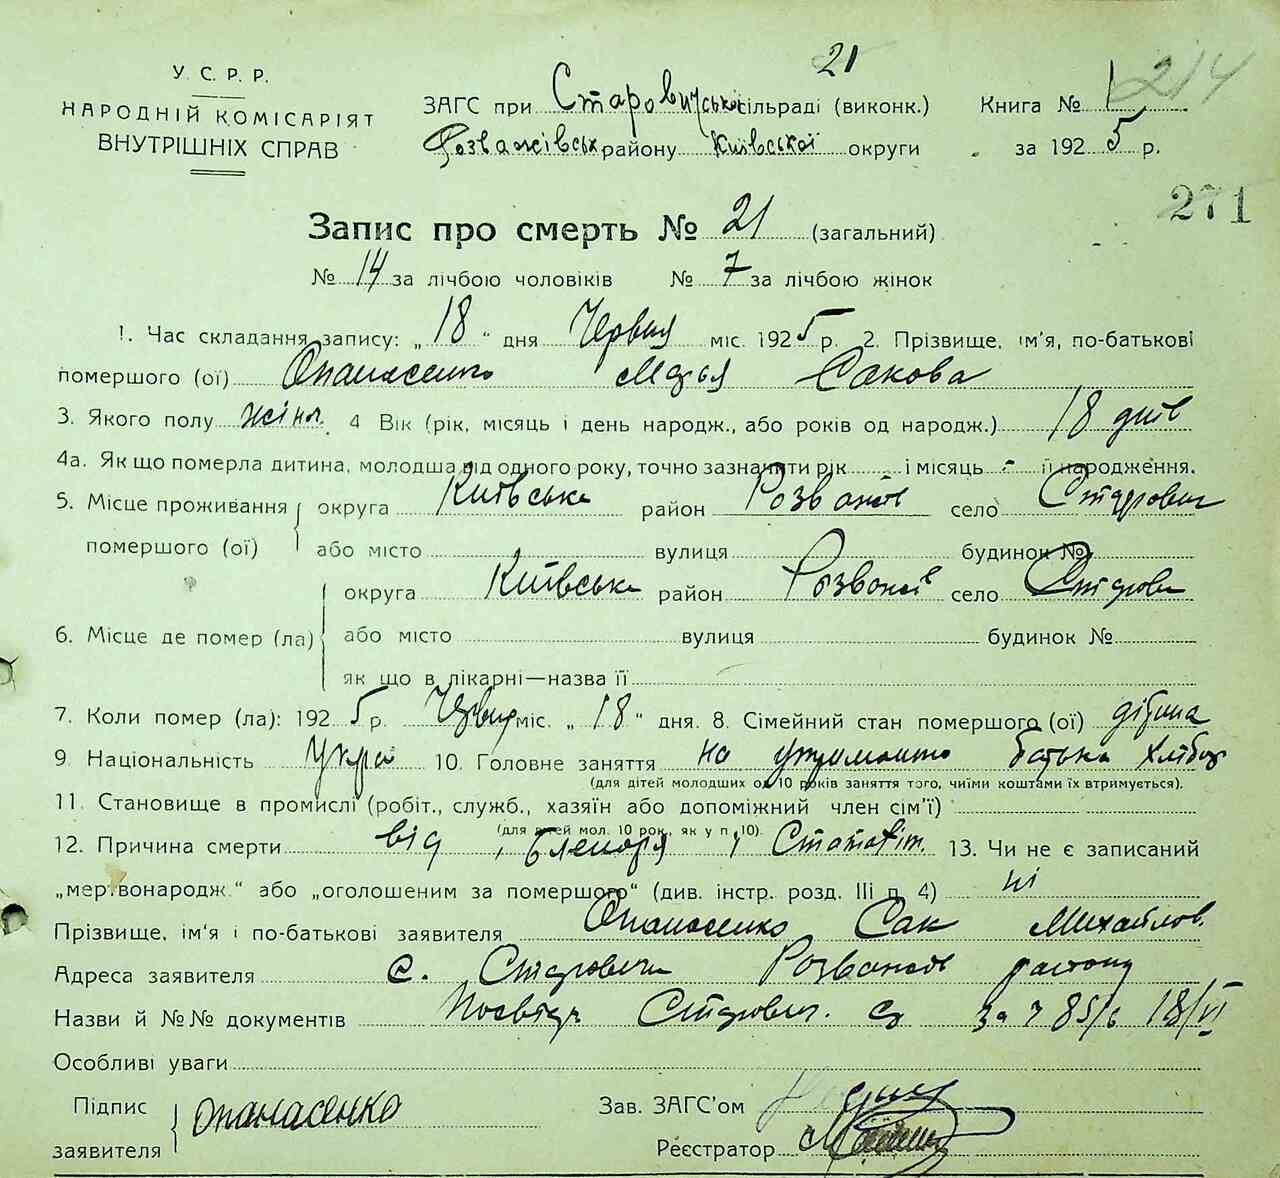 21
214
У.С.Р.Р.
НАРОДНІЙ КОМІСАРІЯТ
ВНУТРІШНІХ СПРАВ
ЗАГС при Старовицькій сільраді (виконк.)
Розважівськ району Київської округи
Книга № 1
за 1925 р.
271
Запис про смерть № 21 (загальний)
№ 14 за лічбою чоловіків № 7 за лічбою жінок
1. Час складання запису: „18" дня Червня міс. 1925 р. 2. Прізвище, ім'я, по-батькові
помершого (ої) Опанасенко Марья Сакова
3. Якого полу жіноч. 4 Вік (рік, місяць і день народж., або років од народж.) 18 днів
4а. Як що померла дитина, молодша від одного року, точно зазначити рік і місяць - її народження.
5. Місце проживання округа Київська район Розважів село Старович
помершого (ої) або місто вулиця будинок №
округа Київська район Розважів село Старови
6. Місце де помер (ла) або місто вулиця будинок №
як що в лікарні—назва її
7. Коли помер (ла): 1925 р. Червня міс. „18" дня. 8. Сімейний стан помершого (ої) дітина
9. Національність Укра 10. Головне заняття на утриманню батька Хлібор
(для дітей молодших од 10 років заняття того, чиїми коштами їх втримується).
11. Становище в промислі (робіт., служб., хазяїн або допоміжний член сім'ї)
(для дітей мол. 10 рок., як у п. 10).
12. Причина смерти від 13. Чи не є записаний
„мертвонародж." або „оголошеним за помершого" (див. інстр. розд. III п. 4) ні
Прізвище, ім'я і по-батькові заявителя Опанасенко Сак Михайлов.
Адреса заявителя с. Старовичи Розважів району
Назви й №№ документів Посвідч Старович. за ч 85/в 18/VI
Особливі уваги
Підпис заявителя Опанасенко
Зав. ЗАГС'ом
Реєстратор